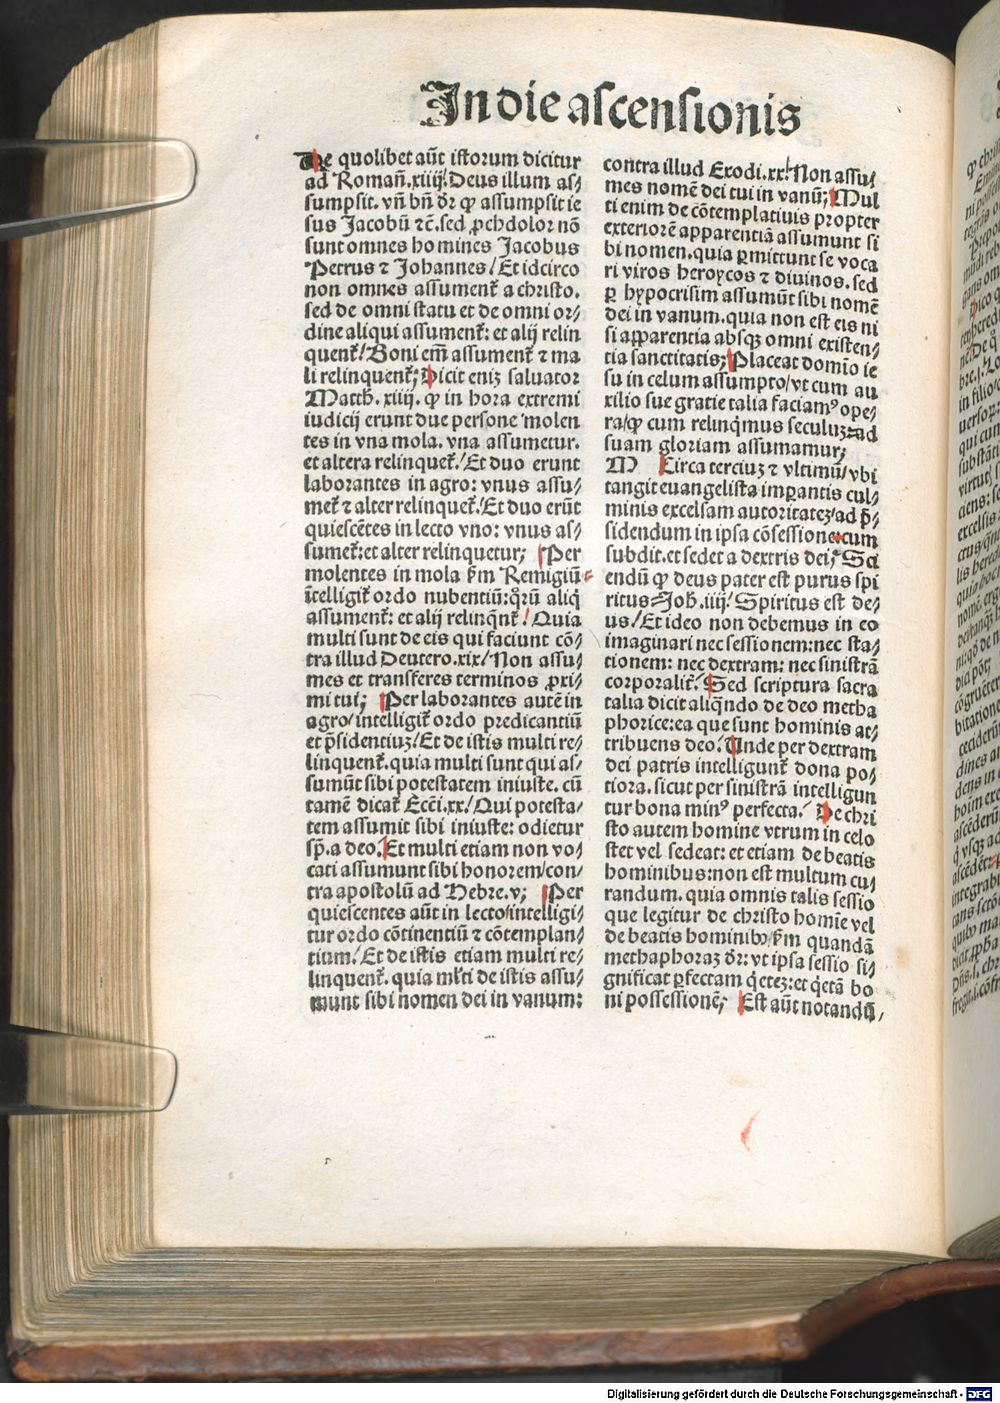 In die ascensionis
De quolibet aūt istorum dicitur
ad Romañ.xiiij. Deus illum as⸗
sumpsit. vñ bñ dr̄ ꝙ assumpsit ie
sus Jacobū ⁊c̄.sed ꝓchdolor nō
sunt omnes homines Jacobus
Petrus ⁊ Johannes/ Et idcirco
non omnes assument̄ a christo.
sed de omni statu et de omni or⸗
dine aliqui assument̄: et alij relin
quent̄/ Boni em̄ assument̄ ⁊ ma
li relinquent̄; Dicit eniꝫ saluator
Matth. xiiij. ꝙ in hora extremi
iudicij erunt due persone molen
tes in vna mola. vna assumetur.
et altera relinquet̄./ Et duo erunt
laborantes in agro: vnus assu⸗
met̄ ⁊ alter relinquet̄./ Et duo erūt
quiescētes in lecto vno: vnus as⸗
sumet̄: et alter relinquetur; Per
molentes in mola ẜm Remigiū
īntelligit̄ ordo nubentiū: qr̄ū aliq̄
assument̄: et alij relinqn̄t̄/ Quia
multi sunt de eis qui faciunt cō⸗
tra illud Deutero.xix/ Non assu⸗
mes et transferes terminos ꝓxi⸗
mi tui; Per laborantes autē in
agro/ intelligit̄ ordo predicantiū
et p̄sidentiuꝫ/ Et de istis multi re⸗
linquent̄. quia multi sunt qui as⸗
sumūt sibi potestatem iniuste. cū
tamē dicat̄ Ecci̅.xx./ Qui potesta⸗
tem assumit sibi iniuste: odietur
sp̄. a deo. Et multi etiam non vo⸗
cati assumunt sibi honorem/con⸗
tra apostolū ad Hebre.v; Per
quiescentes aūt in lecto/intelligi⸗
tur ordo cōtinentiū ⁊ cōtemplan⸗
tium/ Et de istis etiam multi re⸗
linquent̄. quia ml̄ti de istis assu⸗
munt sibi nomen dei in vanum:
contra illud Exodi.xx/ Non assu⸗
mes nomē dei tui in vanū; Mul
ti enim de cōtemplatiuis propter
exteriorē apparentiā assumunt si
bi nomen. quia ꝑmittunt se voca
ri viros heroycos ⁊ diuinos. sed
ꝑ hypocrisim assumūt sibi nomē
dei in vanum. quia non est eis ni
si apparentia absqꝫ omni existen⸗
tia sanctitatis; Placeat domīo ie
su in celum assumpto/ vt cum au
xilio sue gratie talia faciamꝰ ope⸗
ra/ ꝙ cum relinq̄mus seculuꝫ ad
suam gloriam assumamur;
M Circa terciuꝫ ⁊ vltimū/ vbi
tangit euangelista imꝑantis cul⸗
minis excelsam autoritateꝫ/ ad p̄⸗
sidendum in ipsa cōsessione: cum
subdit. et sedet a dextris dei; Sci
endū ꝙ deus pater est purus spi
ritus Joh. iiij/ Spiritus est de⸗
us/ Et ideo non debemus in eo
imaginari nec sessionem: nec sta⸗
tionem: nec dextram: nec sinistrā
corporalit̄. Sed scriptura sacra
talia dicit aliqn̄do de deo metha
phorice: ea que sunt hominis at⸗
tribuens deo. Unde per dextram
dei patris intelligunt̄ dona po⸗
tiora. sicut per sinistrā intelligun
tur bona minꝰ perfecta. De chri
sto autem homine vtrum in celo
stet vel sedeat: et etiam de beatis
hominibus: non est multum cu⸗
randum. quia omnis talis sessio
que legitur de christo homīe vel
de beatis hominibꝰ/ ẜm quandā
methaphoraꝫ dr̄: vt ipsa sessio si⸗
gnificat ꝑfectam q̄eteꝫ: et q̄etā bo
ni possessionē; Est aūt notandū,
Digitalisierung gefördert durch die Deutsche Forschungsgemeinschaft - DFG